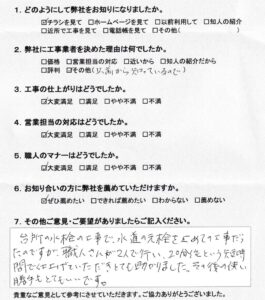 1. どのようにして弊社をお知りになりましたか。
☑チラシを見て □ホームページを見て □以前利用して □知人の紹介
□近所で工事を見て □電話帳を見て □その他( )
2. 弊社に工事業者を決めた理由は何でしたか。
□価格 □営業担当の対応 □近いから □知人の紹介だから
□評判 ☑その他(以前から知っているので)
3. 工事の仕上がりはどうでしたか。
☑大変満足 □満足 □やや不満 □不満
4. 営業担当の対応はどうでしたか。
☑大変満足 □満足 □やや不満 □不満
5. 職人のマナーはどうでしたか。
☑大変満足 □満足 □やや不満 □不満
6. お知り合いの方に弊社を薦めていただけますか。
☑ぜひ薦めたい □できれば薦めたい □わからない □薦めない
7. その他ご意見・ご要望がありましたらご記入ください。
台所の水栓の工事で、水道の元栓を止めての工事だっ
たのですが、職人さんが2人で行い、20分位という短時
間で仕上げていただきとても助かりました。その後の使い
勝手もとてもいいです。
貴重なご意見として参考にさせていただきます。ご協力ありがとうございました。